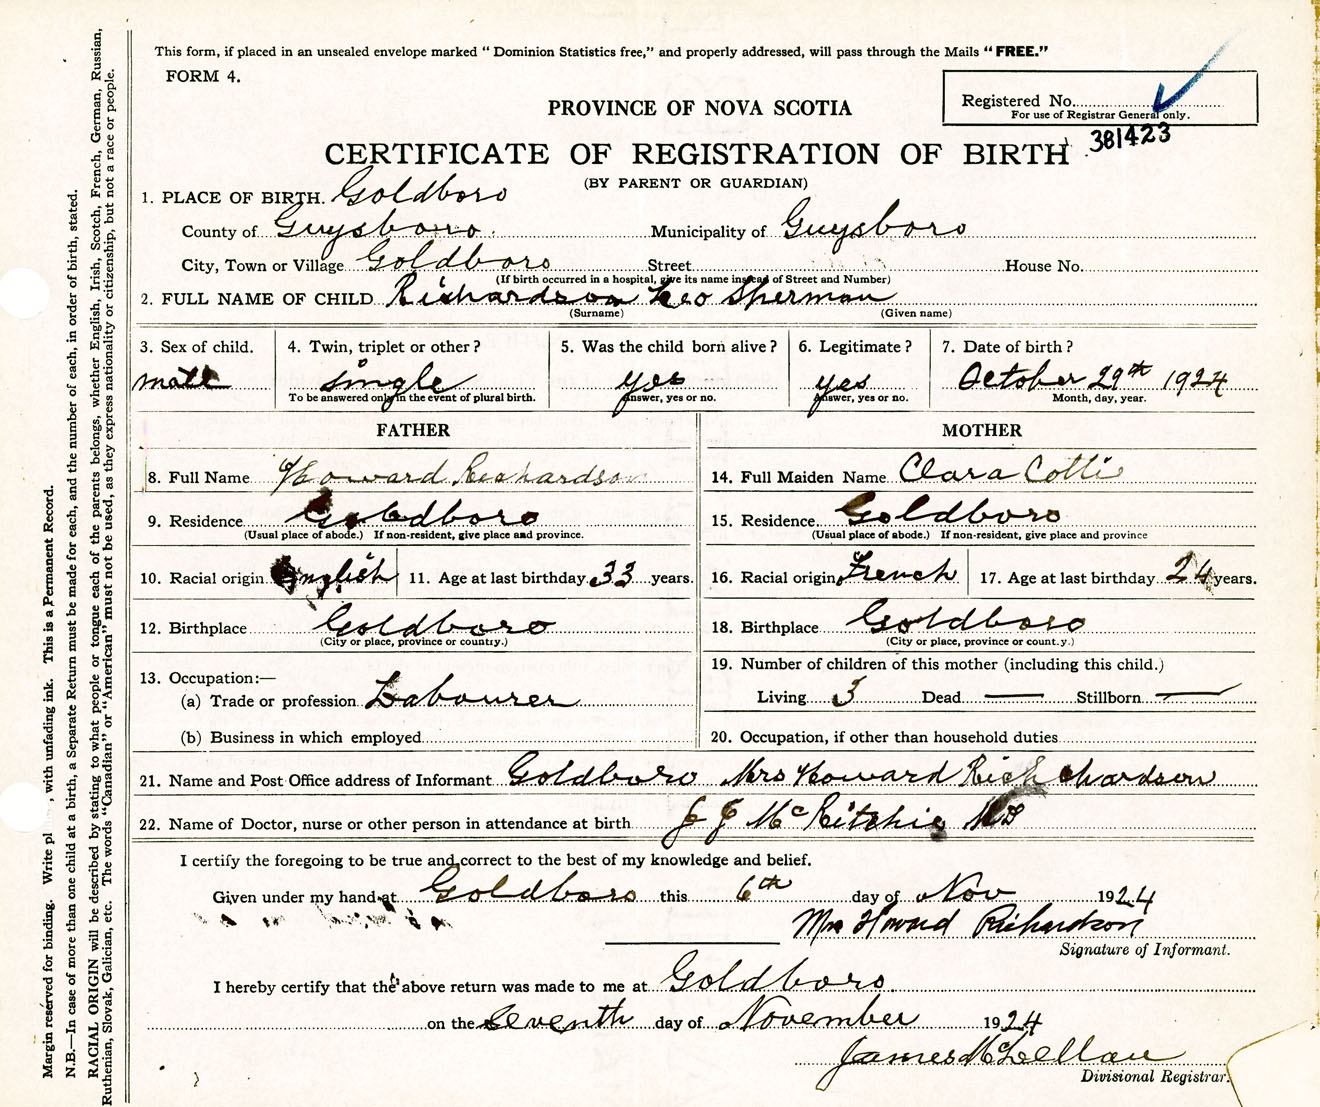 This form, if placed in an unsealed envelope marked " Dominion Statistics free," and properly addressed, will pass through the Mails "FREE."
FORM 4.
Registered No.
For use of Registrar General only.
381423
PROVINCE OF NOVA SCOTIA
CERTIFICATE OF REGISTRATION OF BIRTH
(BY PARENT OR GUARDIAN)
1. PLACE OF BIRTH. Goldboro
County of Guysboro. Municipality of Guysboro
City, Town or Village Goldboro Street House No.
(If birth occurred in a hospital, give its name instead of Street and Number)
2. FULL NAME OF CHILD Richardson Leo Sherman
(Surname) (Given name)
3. Sex of child. 4. Twin, triplet or other? 5. Was the child born alive? 6. Legitimate? 7. Date of birth?
male single yes yes October 29th 1924
To be answered only in the event of plural birth. Answer, yes or no. Answer, yes or no. Month, day, year.
FATHER MOTHER
8. Full Name Howard Richardson 14. Full Maiden Name Clara
9. Residence Goldboro 15. Residence. Goldboro
(Usual place of abode.) If non-resident, give place and province. (Usual place of abode.) If non-resident, give place and province
10. Racial origin English 11. Age at last birthday. 33 years. 16. Racial origin French 17. Age at last birthday 24 years.
12. Birthplace Goldboro 18. Birthplace Goldboro
(City or place, province or country.) (City or place, province or count.y.)
13. Occupation:— 19. Number of children of this mother (including this child.)
(a) Trade or profession Labourer Living 3 Dead — Stillborn —
(b) Business in which employed 20. Occupation, if other than household duties
21. Name and Post Office address of Informant Goldboro Mrs Howard Rich chardson
22. Name of Doctor, nurse or other person in attendance at birth J J McRitchie MD
I certify the foregoing to be true and correct to the best of my knowledge and belief.
Given under my hand at Goldboro this 6th day of Nov 1924
Mrs Howard Richardson
Signature of Informant.
I hereby certify that the above return was made to me at Goldboro
on the Seventh day of November 1924
James McLellan
Divisional Registrar.
Margin reserved for binding. Write pl , with unfading ink. This is a Permanent Record.
N.B.—In case of more than one child at a birth, a Separate Return must be made for each, and the number of each, in order of birth, stated.
RACIAL ORIGIN will be described by stating to what people or tongue each of the parents belongs, whether English, Irish, Scotch, French, German, Russian,
Ruthenian, Slovak, Galician, etc. The words "Canadian" or "American" must not be used, as they express nationality or citizenship, but not a race or people.